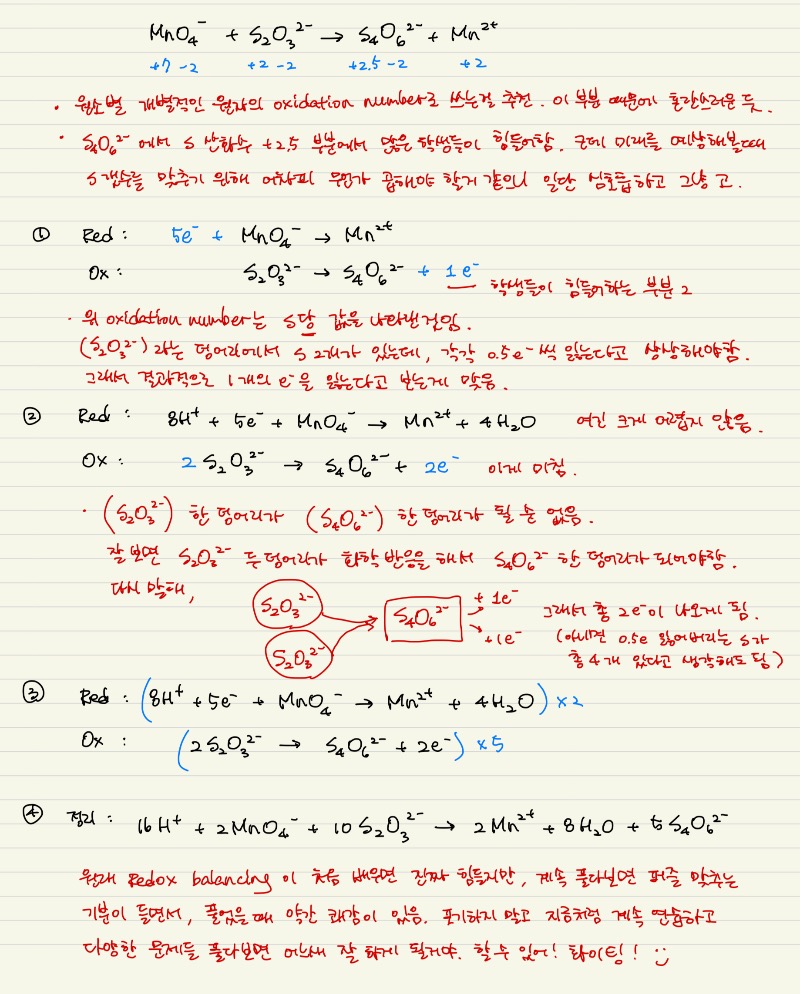 MnO₄⁻ + S₂O₃²⁻ → S₄O₆²⁻ + Mn²⁺
+7 -2 +2 -2 +2.5 -2 +2
· 원소별 개별적인 원자의 oxidation number로 쓰는걸 추천. 이 부분 때문에 혼란스러운 듯.
· S₄O₆²⁻ 에서 S 산화수 +2.5 부분에서 많은 학생들이 힘들어함. 근데 미래를 예상해볼때
S 갯수를 맞추기 위해 어차피 무언가 곱해야 할거 같으니 일단 심호흡하고 그냥 고.
① Red : 5e⁻ + MnO₄⁻ → Mn²⁺
Ox : S₂O₃²⁻ → S₄O₆²⁻ + 1e⁻ 학생들이 힘들어하는 부분 2
· 위 oxidation number는 S당 값을 나타낸것임.
(S₂O₃²⁻) 라는 덩어리에서 S 2개가 있는데, 각각 0.5e⁻ 씩 잃는다고 상상해야함.
그래서 결과적으로 1개의 e⁻을 잃는다고 보는게 맞음.
② Red : 8H⁺ + 5e⁻ + MnO₄⁻ → Mn²⁺ + 4H₂O 여긴 크게 어렵지 않음.
Ox : 2 S₂O₃²⁻ → S₄O₆²⁻ + 2e⁻ 이게 미침.
· (S₂O₃²⁻) 한 덩어리가 (S₄O₆²⁻) 한 덩어리가 될 순 없음.
잘 보면 S₂O₃²⁻ 두 덩어리가 화학 반응을 해서 S₄O₆²⁻ 한 덩어리가 되어야함.
다시 말해,
S₂O₃²⁻ S₄O₆²⁻ + 1e⁻ 그래서 총 2e⁻이 나오게 됨.
S₂O₃²⁻ +1e⁻ (아니면 0.5e 잃어버리는 S가
총 4개 있다고 생각해도 됨)
③ Red : (8H⁺ + 5e⁻ + MnO₄⁻ → Mn²⁺ + 4H₂O) ×2
Ox : (2 S₂O₃²⁻ → S₄O₆²⁻ + 2e⁻) ×5
④ 정리 : 16H⁺ + 2MnO₄⁻ + 10 S₂O₃²⁻ → 2Mn²⁺ + 8H₂O + 5 S₄O₆²⁻
원래 Redox balancing 이 처음 배우면 진짜 힘들지만, 계속 풀다보면 퍼즐 맞추는
기분이 들면서, 풀었을 때 약간 쾌감이 있음. 포기하지 말고 지금처럼 계속 연습하고
다양한 문제들 풀다보면 어느새 잘 하게 될거야. 할 수 있어! 화이팅! :)